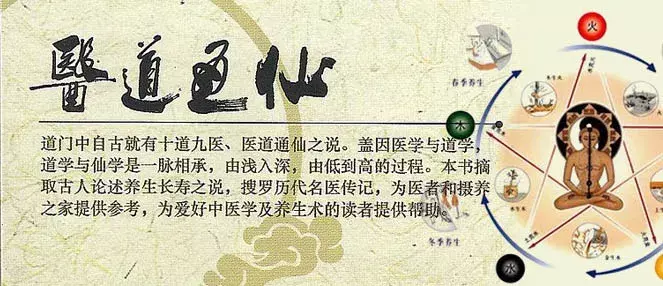 醫道通仙
道门中自古就有十道九医、医道通仙之说。盖因医学与道学，
道学与仙学是一脉相承，由浅入深，由低到高的过程。本书摘
取古人论述养生长寿之说，搜罗历代名医传记，为医者和摄养
之家提供参考，为爱好中医学及养生术的读者提供帮助。
火
春季养生
木
冬季养生
水